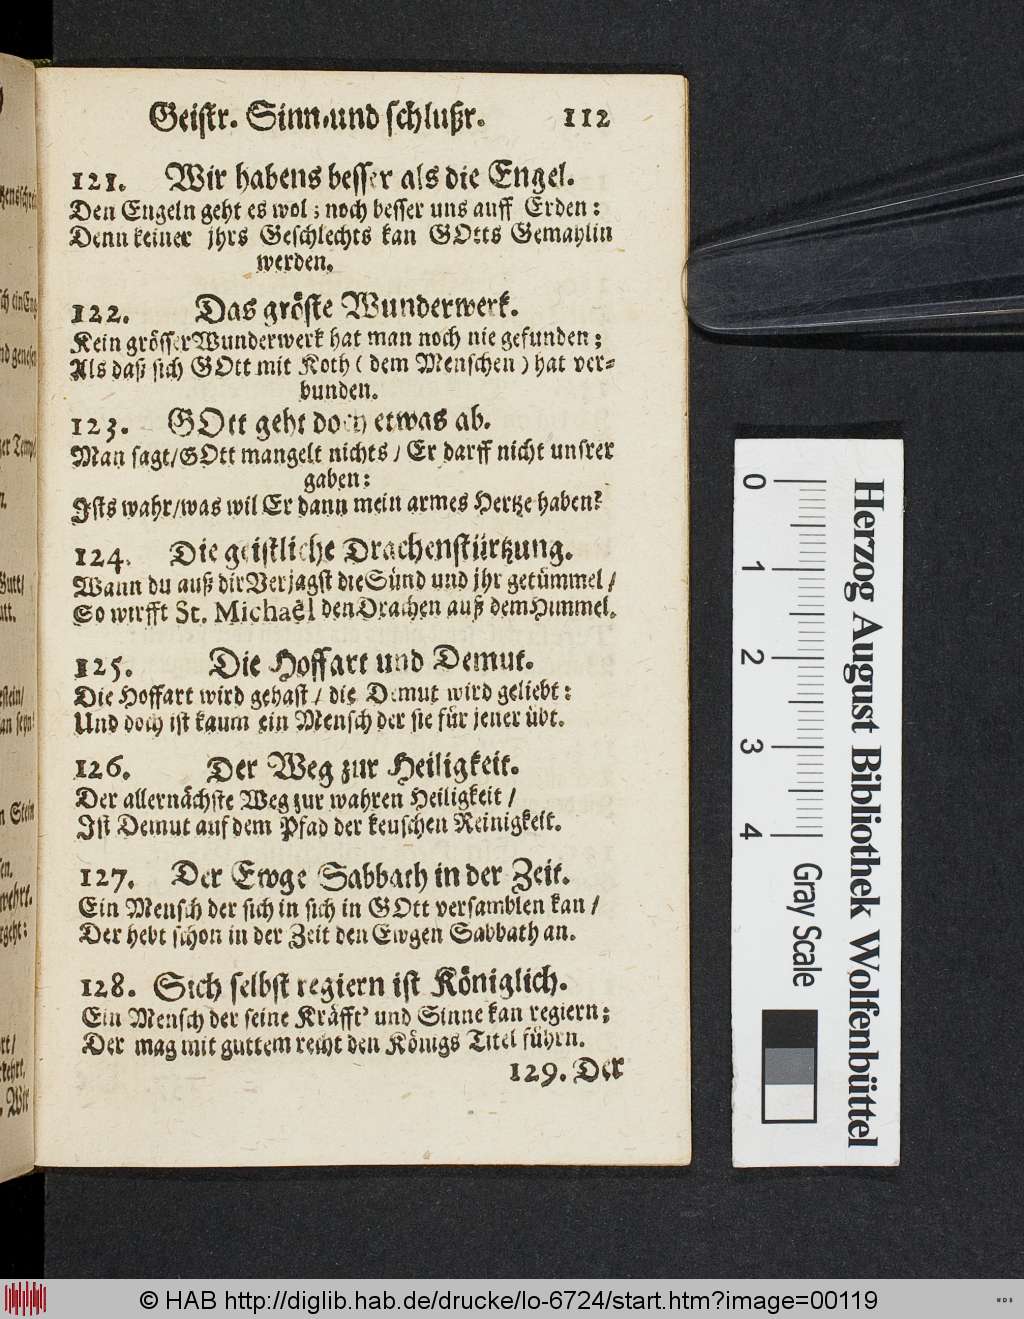 Geistr. Sinn-und schlußr. 112
121. Wir habens besser als die Engel.
Den Engeln geht es wol; noch besser uns auff Erden:
Denn keiner jhrs Geschlechts kan GOtts Gemahlin
werden.
122. Das gröste Wunderwerk.
Kein grösser Wunderwerk hat man noch nie gefunden;
Als daß sich GOtt mit Koth (dem Menschen) hat ver-
bunden.
123. GOtt geht doch etwas ab.
Man sagt/GOtt mangelt nichts / Er darff nicht unsrer
gaben:
Ists wahr/was wil Er dann mein armes Hertze haben?
124. Die geistliche Drachenstürtzung.
Wann du auß dir Verjagst die Sünd und jhr getümmel /
So wirfft St. Michaël den Drachen auß dem Himmel.
125. Die Hoffart und Demut.
Die Hoffart wird gehast / die Demut wird geliebt:
Und doch ist kaum ein Mensch der sie für jener übt.
126. Der Weg zur Heiligkeit.
Der allernächste Weg zur wahren Heiligkeit /
Ist Demut auf dem Pfad der keuschen Reinigkeit.
127. Der Ewge Sabbath in der Zeit.
Ein Mensch der sich in sich in GOtt versamblen kan /
Der hebt schon in der Zeit den Ewgen Sabbath an.
128. Sich selbst regiern ist Königlich.
Ein Mensch der seine Kräfft' und Sinne kan regiern;
Der mag mit guttem recht den Königs Titel führn.
129. Der
0 1 2 3 4 Gray Scale
Herzog August Bibliothek Wolfenbüttel
© HAB http://diglib.hab.de/drucke/lo-6724/start.htm?image=00119